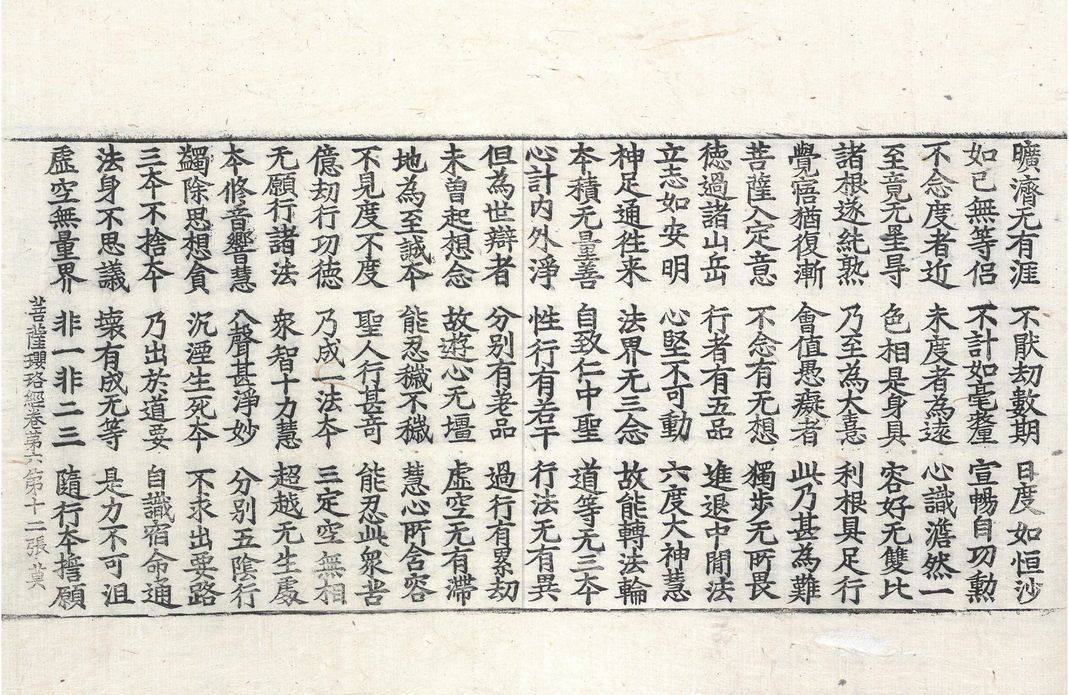 曠濟无有涯　不猒劫數期　日度如恒沙
如己無等侣　不計如毫釐　宣暢自功勲
不念度者近　未度者為逺　心識澹然一
至竟无量㝵　色相是身具　容好无雙比
諸根遂純熟　乃至為大憙　利根具足行
覺寤猶復漸　會值愚癡者　此乃甚為難
菩薩入定意　不念有无想　獨步无所畏
徳過諸山岳　行者有五品　進退中閒法
立志如安明　心堅不可動　六度大神慧
神足通徃来　法界无三念　故能轉法輪
夲積无量善　自致仁中聖　道等无三夲
心計内外淨　性行有若干　行法无有異
但為世辯者　分别有卷品　過行有累劫
未曽起想念　故遊心无壃　虚空无有滯
地為至誠夲　能忍穢不穢　慧心所含容
不見度不度　聖人行甚竒　能忍此衆苦
億劫行功徳　乃成一法夲　三定空無相
无願行諸法　衆智十力慧　超越无生處
夲修音響慧　八聲甚淨妙　分别五陰行
蠲除思想貪　沉湮生死夲　不求出要路
三夲不捨夲　乃出於道要　自識宿命通
法身不思議　壊有成无等　是力不可沮
虚空無量界　非一非二三　隨行夲擔願
菩薩瓔珞經卷第六　第十二張　莫